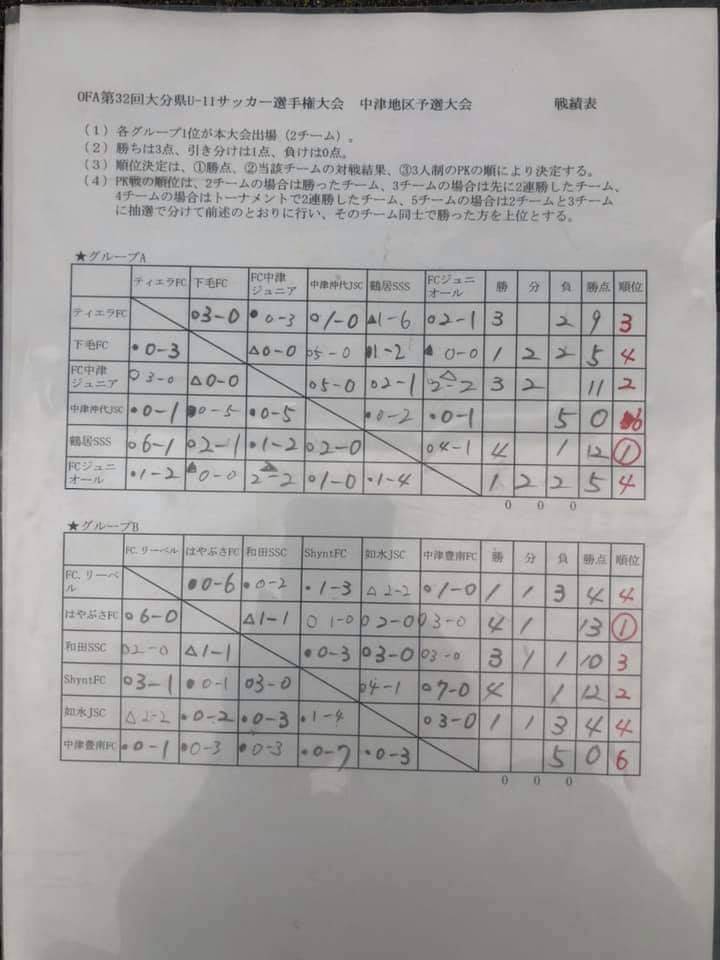 OFA第32回大分県U-11サッカー選手権大会　中津地区予選大会　戦績表
(1) 各グループ1位が本大会出場 (2チーム) 。
(2) 勝ちは3点、引き分けは1点、負けは0点。
(3) 順位決定は、①勝点、②当該チームの対戦結果、③3人制のPKの順により決定する。
(4) PK戦の順位は、2チームの場合は勝ったチーム、3チームの場合は先に2連勝したチーム、
4チームの場合はトーナメントで2連勝したチーム、5チームの場合は2チームと3チーム
に抽選で分けて前述のとおりに行い、そのチーム同士で勝った方を上位とする。
★グループA
ティエラFC 下毛FC FC中津ジュニア 中津沖代JSC 鶴居SSS FCジュニオール 勝 分 負 勝点 順位
ティエラFC ○3-0 ●0-3 ○1-0 ▲1-6 ○2-1 3 2 9 3
下毛FC ●0-3 △0-0 ○5-0 ●1-2 ▲0-0 1 2 2 5 4
FC中津ジュニア ○3-0 △0-0 ○5-0 ○2-1 △2-2 3 2 11 2
中津沖代JSC ●0-1 ●0-5 ●0-5 ●0-2 ●0-1 5 0 6
鶴居SSS ○6-1 ○2-1 ●1-2 ○2-0 ○4-1 4 1 12 ①
FCジュニオール ●1-2 ▲0-0 △2-2 ○1-0 ●1-4 1 2 2 5 4
0 0 0
★グループB
FC.リーベル はやぶさFC 和田SSC ShyntFC 如水JSC 中津豊南FC 勝 分 負 勝点 順位
FC.リーベル ●0-6 ●0-2 ●1-3 △2-2 ○1-0 1 1 3 4 4
はやぶさFC ○6-0 △1-1 ○1-0 ○2-0 ○3-0 4 1 13 ①
和田SSC ○2-0 △1-1 ●0-3 ○3-0 ○3-0 3 1 1 10 3
ShyntFC ○3-1 ●0-1 ○3-0 ○4-1 ○7-0 4 1 12 2
如水JSC △2-2 ●0-2 ●0-3 ●1-4 ○3-0 1 1 3 4 4
中津豊南FC ●0-1 ●0-3 ●0-3 ●0-7 ●0-3 5 0 6
0 0 0